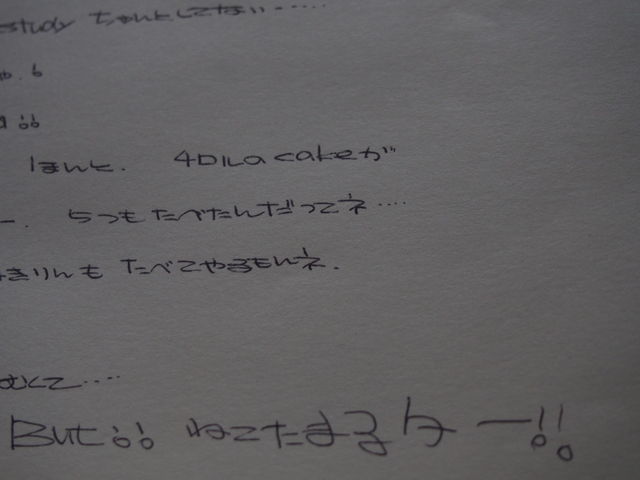 study ちゃんとしてない……
6
!!
ほんと. 4コルのcakeが
ー. 5つもたべたんだってネ…
きりんも たべてやるもんネ.
むくて…
But!! ねてたまるケー!!